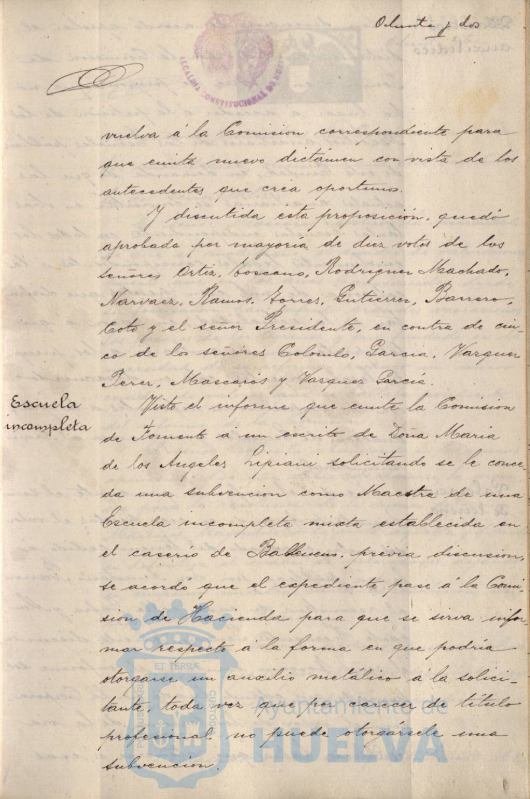 Ochenta y dos
ALCALDIA CONSTITUCIONAL DE
vuelva á la Comision correspondiente para
que emita nuevo dictámen con vista de los
antecedentes que crea oportunos.
Y discutida esta proposición, quedó
aprobada por mayoría de diez votos de los
señores Ortiz, Toscano, Rodriguez Machado,
Narvaez, Ramos, Torres, Gutierrez, Barrero,
Coto y el señor Presidente, en contra de cin-
co de los señores Colombo, Garcia, Vazquez
Perez, Mascarós y Vazquez García.
Escuela
incompleta
Visto el informe que emite la Comision
de Fomento á un escrito de Doña Maria
de los Angeles Lipiani solicitando se le conce-
da una subvencion como Maestra de una
Escuela incompleta mixta establecida en
el caserío de, previa discusion,
se acordó que el expediente pase á la Comi-
sion de Hacienda para que se sirva infor-
mar respecto á la forma en que podría
otorgarse un auxilio metálico á la solici-
tante, toda vez que por carecer de título
profesional no puede otorgársele una
subvencion.
ET TERRÆ
Ayuntamiento de
HUELVA